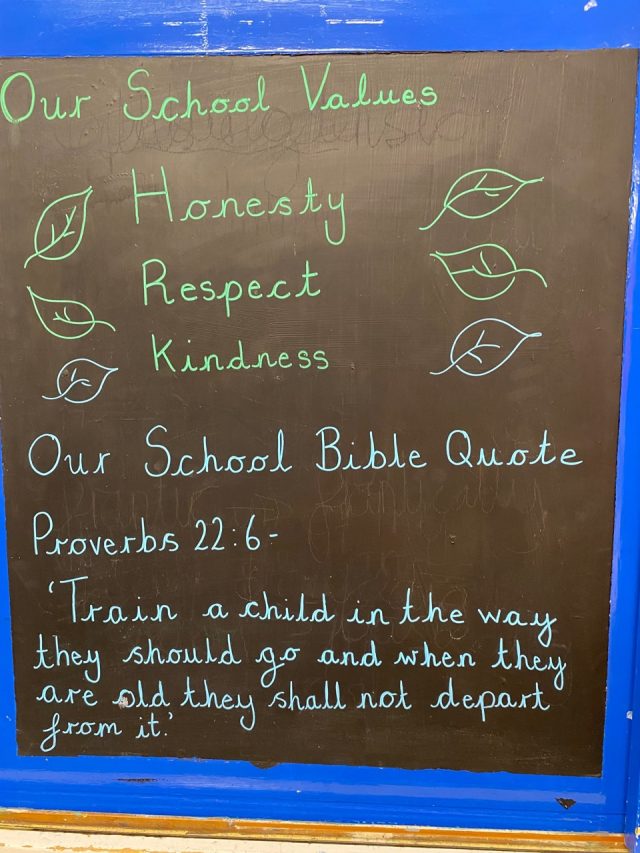 Our School Values
Honesty
Respect
Kindness
Our School Bible Quote
Proverbs 22:6-
'Train a child in the way
they should go and when they
are old they shall not depart
from it.'